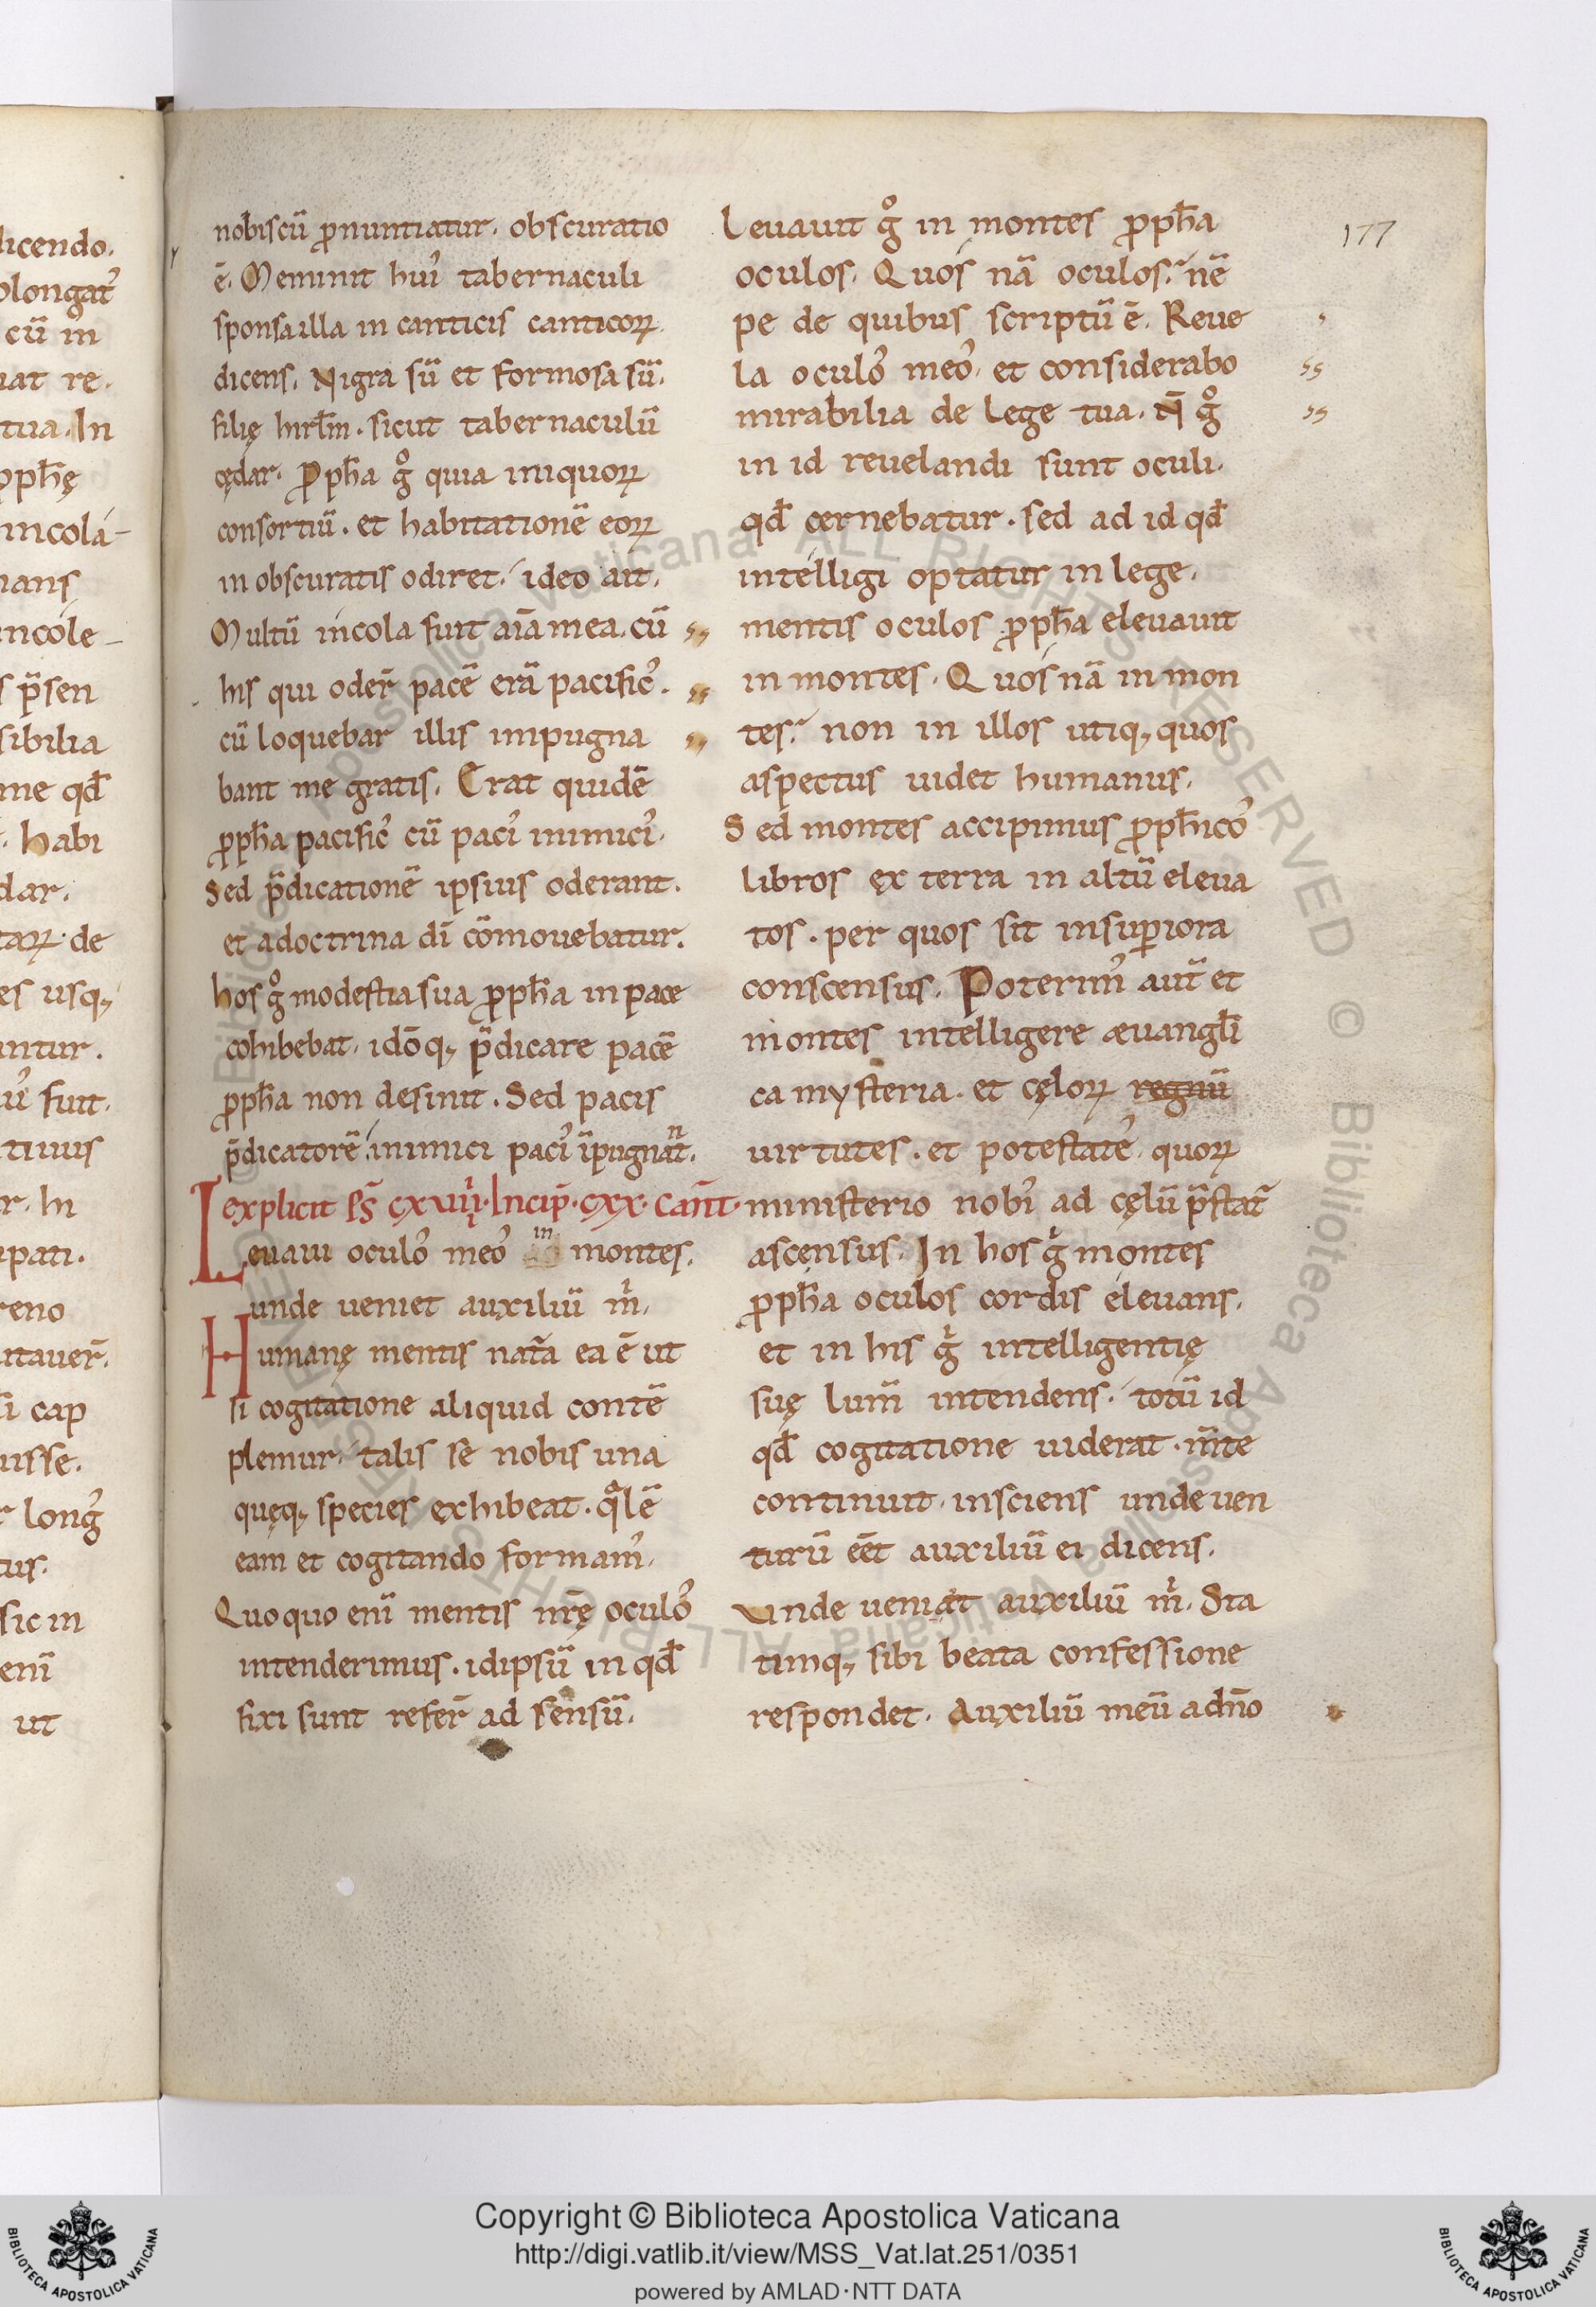 licendo.
olongat᷒
cū in
uat re.
tua. In
pph̄ę
incolá-
nans
incóle-
s p̄sen
sibilia
me qd̄
. habi
dar.
taꝝ. de
es usq;
untur.
ui᷒ fuit.
tiuus
r. In
upati.
reno
itauer̄.
cap
uisse.
long᷒
tus.
sic in
enī
ut
nobiscū ꝓnuntiatur. obscuratio
ē. Meminit hui᷒ tabernaculi
sponsa illa in canticis canticoꝝ.
dicens. Nigra sū et formosa sū.
filię hirl̄m. sicut tabernaculū
cędar. Ꝓph̄a gͦ quia iniquoꝝ
consortiū. et habitationē eoꝝ
in obscuratis odiret. ideo ait.
Multū incola fuit aīa mea. cū
his qui oder̄ pacē erā pacific᷒.
cū loquebar illis impugna
bant me gratis. Erat quidē
ꝓph̄a pacific᷒ cū paci᷒ inimici᷒.
Sed p̄dicationē ipsius oderant.
et a doctrina dī cōmouebatur.
hos gͦ modestia sua ꝓph̄a in pace
cohibebat. idōq; p̄dicare pacē
ꝓph̄a non desinit. Sed pacis
p̄dicatorē inimici paci᷒ īpugnāt.
explicit ps̄ cxviiij. Incip̄. cxx. cant̄.
Leuaui oculo᷒ meo᷒ in montes.
unde ueniet auxiliū mͥ.
Humanę mentis nat̄a ea ē ut
si cogitatione aliquid contē
plemur. talis se nobis una
quęq; species exhibeat. qͣlē
eam et cogitando formam᷒.
Quoquo enī mentis nr̄ę oculo᷒
intenderimus. idipsū in qd̄
fixi sunt refer̄ ad sensū.
177
Leuauit gͦ in montes ꝓph̄a
oculos. Quos nā oculos. nē
pe de quibus scriptū ē. Reue
la oculo᷒ meo᷒. et considerabo
mirabilia de lege tua. N̄ gͦ
in id reuelandi sunt oculi.
qd̄ cernebatur. sed ad id qd̄
intelligi optatur in lege.
mentis oculos ꝓph̄a eleuauit
in montes. Quos nā in mon
tes. non in illos utiq; quos
aspectus uidet humanus.
Sed montes accipimus ꝓph̄ico᷒
libros ex terra in altū eleua
tos. per quos sit in suꝑiora
conscensus. Poterim᷒ aut̄ et
montes intelligere æuangl̄i
ca mysteria. et cęloꝝ regnū
uirtutes. et potestate᷒. quoꝝ
ministerio nobi᷒ ad cęlū p̄stat᷒
ascensus. In hos gͥ montes
ꝓph̄a oculos cordis eleuans.
et in his gͥ intelligentię
suę lum̄ intendens. totū id
qd̄ cogitatione uiderat. m̄te
continuit. insciens unde uen
turū eēt auxiliū ei dicens.
Unde ueniat auxiliū mͥ. Sta
timq; sibi beata confessione
respondet. Auxiliū meū a dn̄o
Copyright © Biblioteca Apostolica Vaticana
http://digi.vatlib.it/view/MSS_Vat.lat.251/0351
powered by AMLAD·NTT DATA
BIBLIOTECA APOSTOLICA VATICANA
BIBLIOTECA APOSTOLICA VATICANA